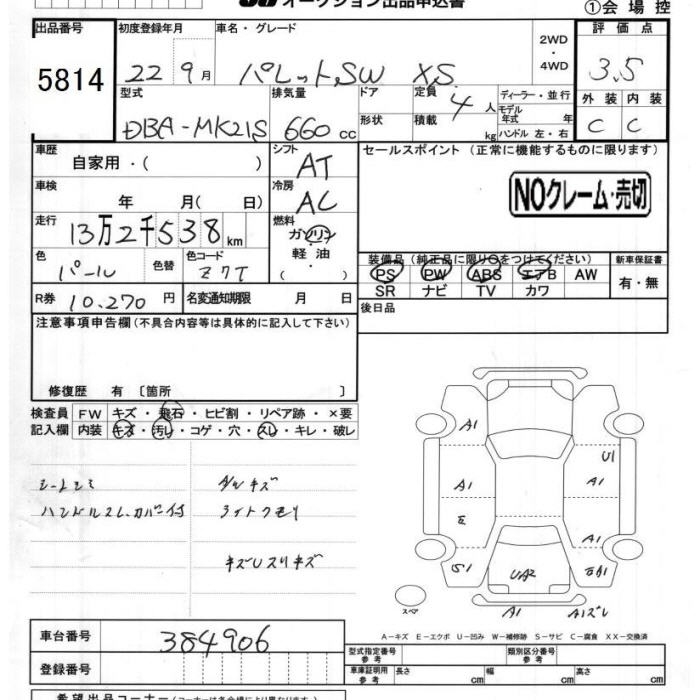 オークション出品申込書
①会場控
出品番号 初度登録年月 車名・グレード 2WD・4WD 評価点
5814 22年 9月 パレット,SW XS 3.5
型式 排気量 ドア 定員 4人 ディーラー・並行 外装 内装
モデル年式 年
DBA-MK21S 660cc 形状 積載 kg ハンドル 左・右 C C
車歴 シフト セールスポイント (正常に機能するものに限ります)
自家用・( ) AT
車検 冷房 NOクレーム・売切
年 月( 日) AC
走行 13万2千538km 燃料
ガソリン
軽油・
( )
色 パール 色替 色コード ZQT
装備品(純正品に限り○をつけてください) 新車保証書
PS PW ABS エアB AW 有・無
SR ナビ TV カワ
R券 10,270円 名変通知期限 月 日
後日品
注意事項申告欄(不具合内容等は具体的に記入して下さい)
修復歴 有〔箇所 〕
検査員 FW キズ・飛石・ヒビ割・リペア跡・×要
記入欄 内装 キズ・汚レ・コゲ・穴・スレ・キレ・破レ
シートシミ
ハンドルスレ、カバー付
ライトクモリ
キズUスリキズ
A1
U1
A1
A1
E
A1
S1
UA2
A1
A1ズレ
スペア
A-キズ E-エクボ U-凹み W-補修跡 S-サビ C-腐食 XX-交換済
車台番号 384906
登録番号
型式指定番号 参考 類別区分番号 参考
車庫証明用 参考 長さ cm 幅 cm 高さ cm
希望出品コーナー